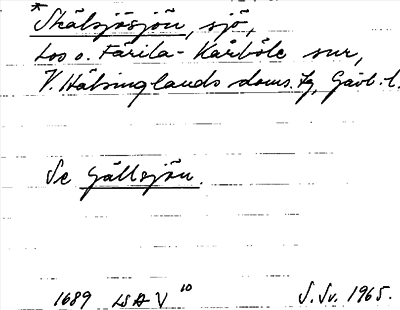 *Skålsjösjön, sjö,
Los o. Färila-Kårböle snr,
V. Hälsinglands doms. tg, Gävl. l.
Se Gällsjön.
1689 LSA V 10 S. Sv. 1965.